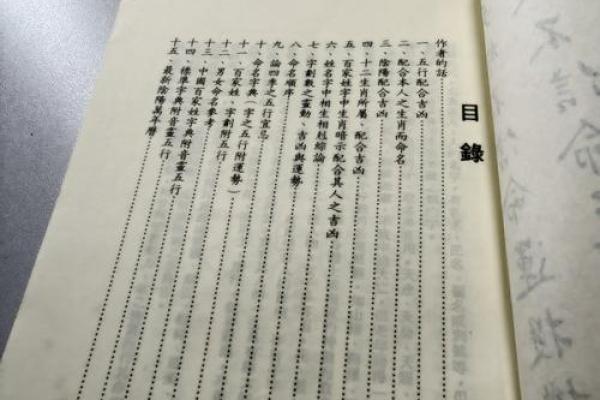 目錄
作者的話
一、五行配合吉凶
二、配合本人之生肖而命名
三、陰陽配合吉凶
四、十二生肖所屬、配合吉凶
五、百家姓字中生肖暗示配合其人之吉凶
六、姓名字中相生相剋綜論
七、字劃數之靈動、吉凶與運勢
八、命名順序
九、論四季之五行宜忌
十、命名字典（字之五行附運勢）
十一、百家姓、字劃附五行
十二、男女命名參考
十三、中國百家姓字典附音靈五行
十四、標準字典附音靈五行
十五、最新陰陽萬年曆